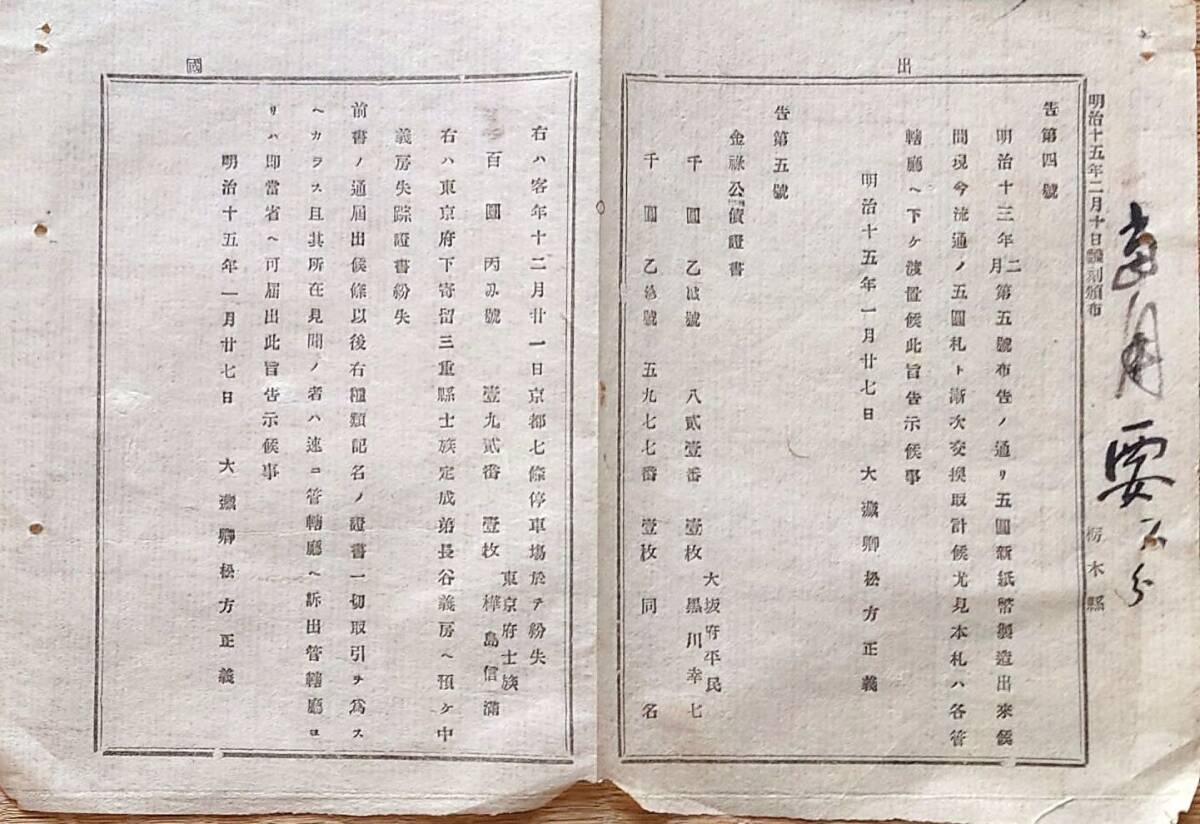 出
明治十五年二月十日飜刻頒布
栃木縣
告第四號
明治十三年二月第五號布告ノ通リ五圓新紙幣製造出來候
間現今流通ノ五圓札ト漸次交換取計候尤見本札ハ各管
轄廳ヘ下ケ渡置候此旨告示候事
明治十五年一月廿七日　大藏卿松方正義
告第五號
金祿公債證書
千圓　乙　號　八貳壹番　壹枚　大坂府平民　黒川幸七
千圓　乙　號　五九七七番　壹枚　同名
國
右ハ客年十二月廿一日京都七條停車塲於テ紛失
百圓　丙　號　壹九貳番　壹枚　東京府士族　樺島信滿
右ハ東京府下寄留三重縣士族定成弟長谷義房ヘ預ケ中
義房失踪證書紛失
前書ノ通届出候條以後右種類記名ノ證書一切取引ヲ爲ス
ヘカラス且其所在見聞ノ者ハ速ニ管轄廳ヘ訴出管轄廳ヨ
リハ即當省ヘ可届出此旨告示候事
明治十五年一月廿七日　大藏卿松方正義